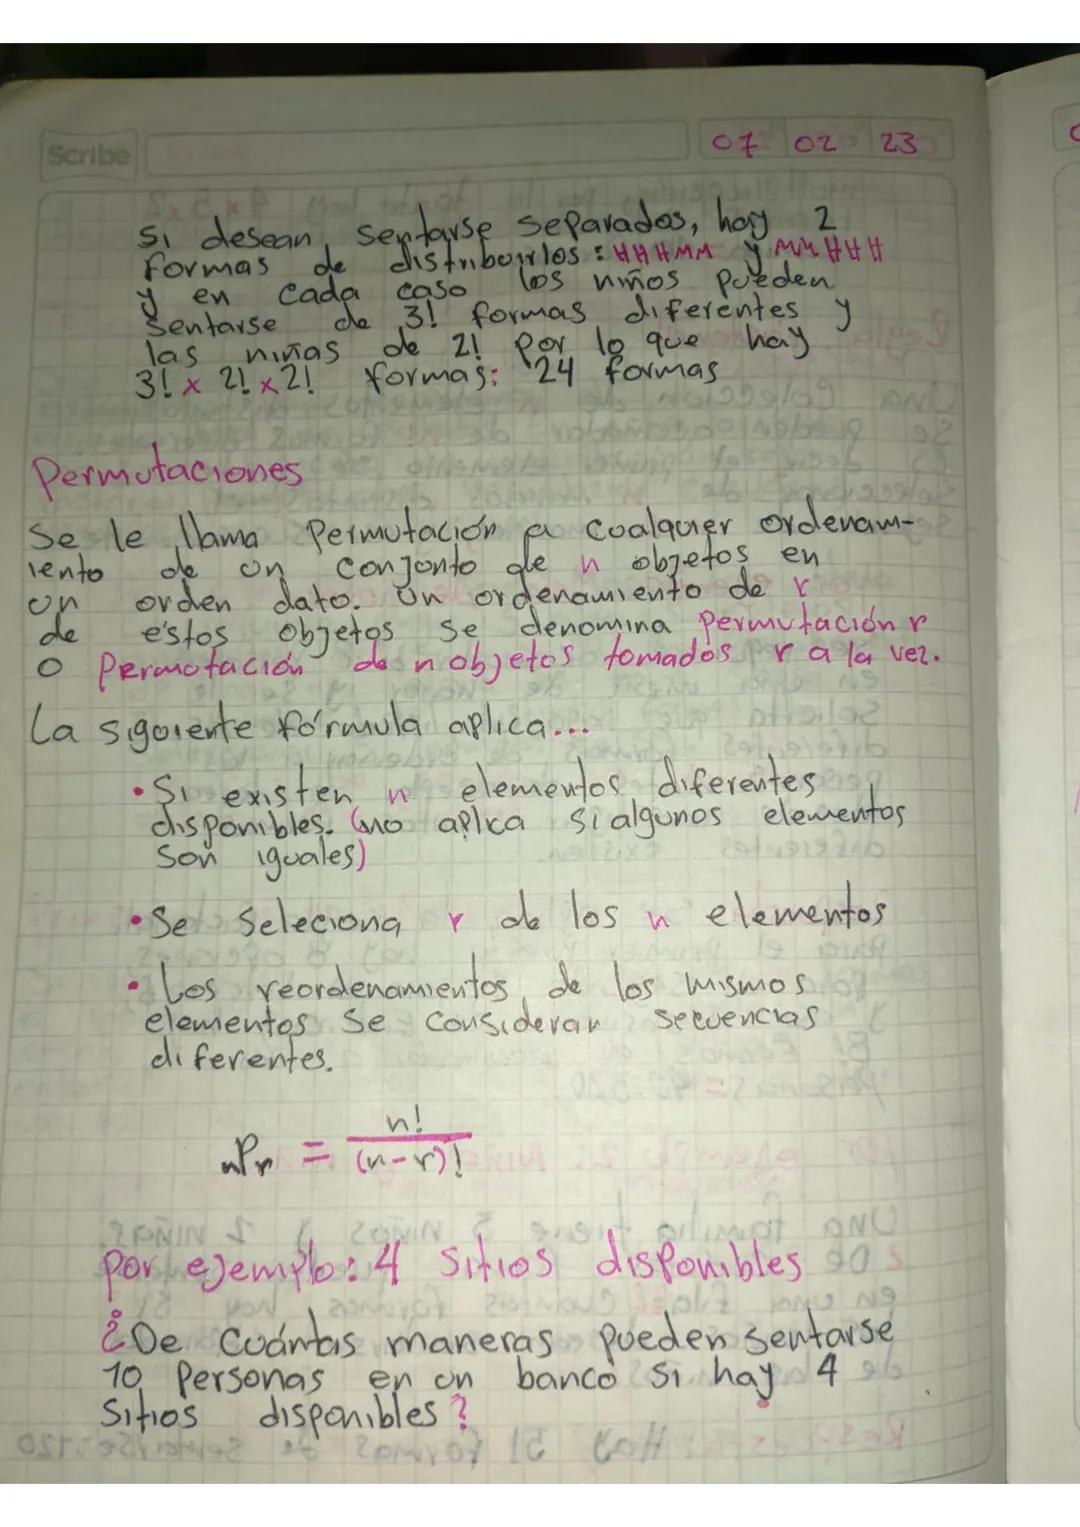 Scribe
07 02 23
Si desean, sentarse separados, hay 2
formas de distribuirlos: HHHMM y MMHHH
y en cada caso los niños pueden
sentarse de 3! formas diferentes y
las niñas de 2! Por lo que hay
3! x 2! x 2! formas: 24 formas
Permutaciones
Se le llama Permutación a cualquier ordenam-
iento de un conjunto de n objetos en
un orden dato. Un ordenamiento de r
de estos objetos se denomina Permutación r
o Permutación de n objetos tomados r a la vez.
La siguiente fórmula aplica...
• Si existen n elementos diferentes
disponibles. (no aplica si algunos elementos
son iguales)
• Se seleciona r de los n elementos
• Los reordenamientos de los mismos
elementos se consideran secuencias
diferentes.
nPr = n!/(n-r)!
por ejemplo: 4 sitios disponibles
¿De cuántas maneras pueden sentarse
10 Personas en un banco si hay 4
sitios disponibles?